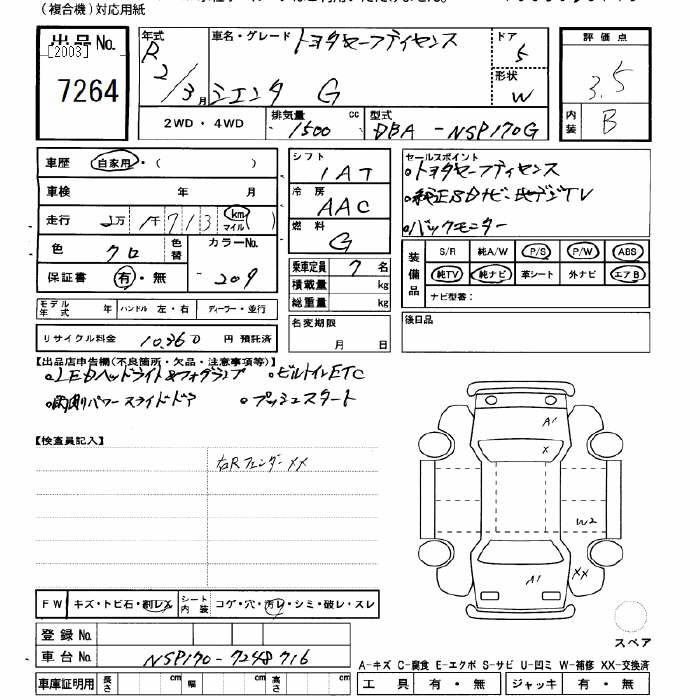 (複合機)対応用紙
出品No. [2003] 7264
年式 R 2/3月
車名・グレード トヨタセーフティセンス
シエンタ G
ドア 5
形状 W
評価点 3.5
内装 B
2WD・4WD
排気量 1500 cc
型式 DBA-NSP170G
車歴 自家用・( )
車検 年 月
走行 2万1千713 km マイル ( )
色 クロ 色替 カラーNo. 209
保証書 有・無
シフト IAT
冷房 AAC
燃料 G
乗車定員 7名
積載量 kg
総重量 kg
セールスポイント
・トヨタセーフティセンス
・純正SDナビ 地デジTV
・バックモニター
装備品 S/R 純A/W P/S P/W ABS
純TV 純ナビ 革シート 外ナビ エアB
ナビ型番:
モデル年式 年 ハンドル 左・右 ディーラー・並行
名変期限 月 日
後日品
リサイクル料金 10,360 円 預託済
【出品店申告欄(不良箇所・欠品・注意事項等)】
・LEDヘッドライト&フォグランプ ・ビルトインETC
・両側パワースライドドア ・プッシュスタート
【検査員記入】
右Rフェンダー XX
A1
X
W2
A1 XX
スペア
FW キズ・トビ石・割レX シート内装 コゲ・穴・汚レ・シミ・破レ・スレ
登録No.
車台No. NSP170-7248716
A-キズ C-腐食 E-エクボ S-サビ U-凹ミ W-補修 XX-交換済
車庫証明用 長さ cm 幅 cm 高さ cm
工具 有・無 ジャッキ 有・無